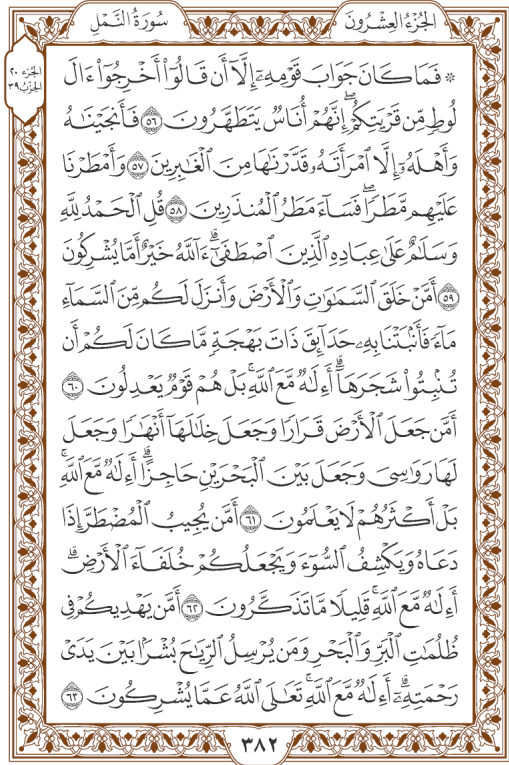 الجُزْءُ العِشْرُونَ
سُورَةُ النَّمْلِ
الجزء ٢٠
الحزب ٣٩
۞ فَمَا كَانَ جَوَابَ قَوْمِهِۦٓ إِلَّآ أَن قَالُوٓاْ أَخْرِجُوٓاْ ءَالَ
لُوطٖ مِّن قَرْيَتِكُمْۖ إِنَّهُمْ أُنَاسٞ يَتَطَهَّرُونَ ٥٦ فَأَنجَيْنَٰهُ
وَأَهْلَهُۥٓ إِلَّا ٱمْرَأَتَهُۥ قَدَّرْنَٰهَا مِنَ ٱلْغَٰبِرِينَ ٥٧ وَأَمْطَرْنَا
عَلَيْهِم مَّطَرٗاۖ فَسَآءَ مَطَرُ ٱلْمُنذَرِينَ ٥٨ قُلِ ٱلْحَمْدُ لِلَّهِ
وَسَلَٰمٌ عَلَىٰ عِبَادِهِ ٱلَّذِينَ ٱصْطَفَىٰٓۗ ءَآللَّهُ خَيْرٌ أَمَّا يُشْرِكُونَ
٥٩ أَمَّنْ خَلَقَ ٱلسَّمَٰوَٰتِ وَٱلْأَرْضَ وَأَنزَلَ لَكُم مِّنَ ٱلسَّمَآءِ
مَآءٗ فَأَنۢبَتْنَا بِهِۦ حَدَآئِقَ ذَاتَ بَهْجَةٖ مَّا كَانَ لَكُمْ أَن
تُنۢبِتُواْ شَجَرَهَآۗ أَءِلَٰهٞ مَّعَ ٱللَّهِۚ بَلْ هُمْ قَوْمٞ يَعْدِلُونَ ٦٠
أَمَّن جَعَلَ ٱلْأَرْضَ قَرَارٗا وَجَعَلَ خِلَٰلَهَآ أَنْهَٰرٗا وَجَعَلَ
لَهَا رَوَٰسِيَ وَجَعَلَ بَيْنَ ٱلْبَحْرَيْنِ حَاجِزًاۗ أَءِلَٰهٞ مَّعَ ٱللَّهِۚ
بَلْ أَكْثَرُهُمْ لَا يَعْلَمُونَ ٦١ أَمَّن يُجِيبُ ٱلْمُضْطَرَّ إِذَا
دَعَاهُ وَيَكْشِفُ ٱلسُّوٓءَ وَيَجْعَلُكُمْ خُلَفَآءَ ٱلْأَرْضِۗ
أَءِلَٰهٞ مَّعَ ٱللَّهِۚ قَلِيلٗا مَّا تَذَكَّرُونَ ٦٢ أَمَّن يَهْدِيكُمْ فِي
ظُلُمَٰتِ ٱلْبَرِّ وَٱلْبَحْرِ وَمَن يُرْسِلُ ٱلرِّيَٰحَ بُشْرَۢا بَيْنَ يَدَيْ
رَحْمَتِهِۦٓۗ أَءِلَٰهٞ مَّعَ ٱللَّهِۚ تَعَٰلَى ٱللَّهُ عَمَّا يُشْرِكُونَ ٦٣
٣٨٢